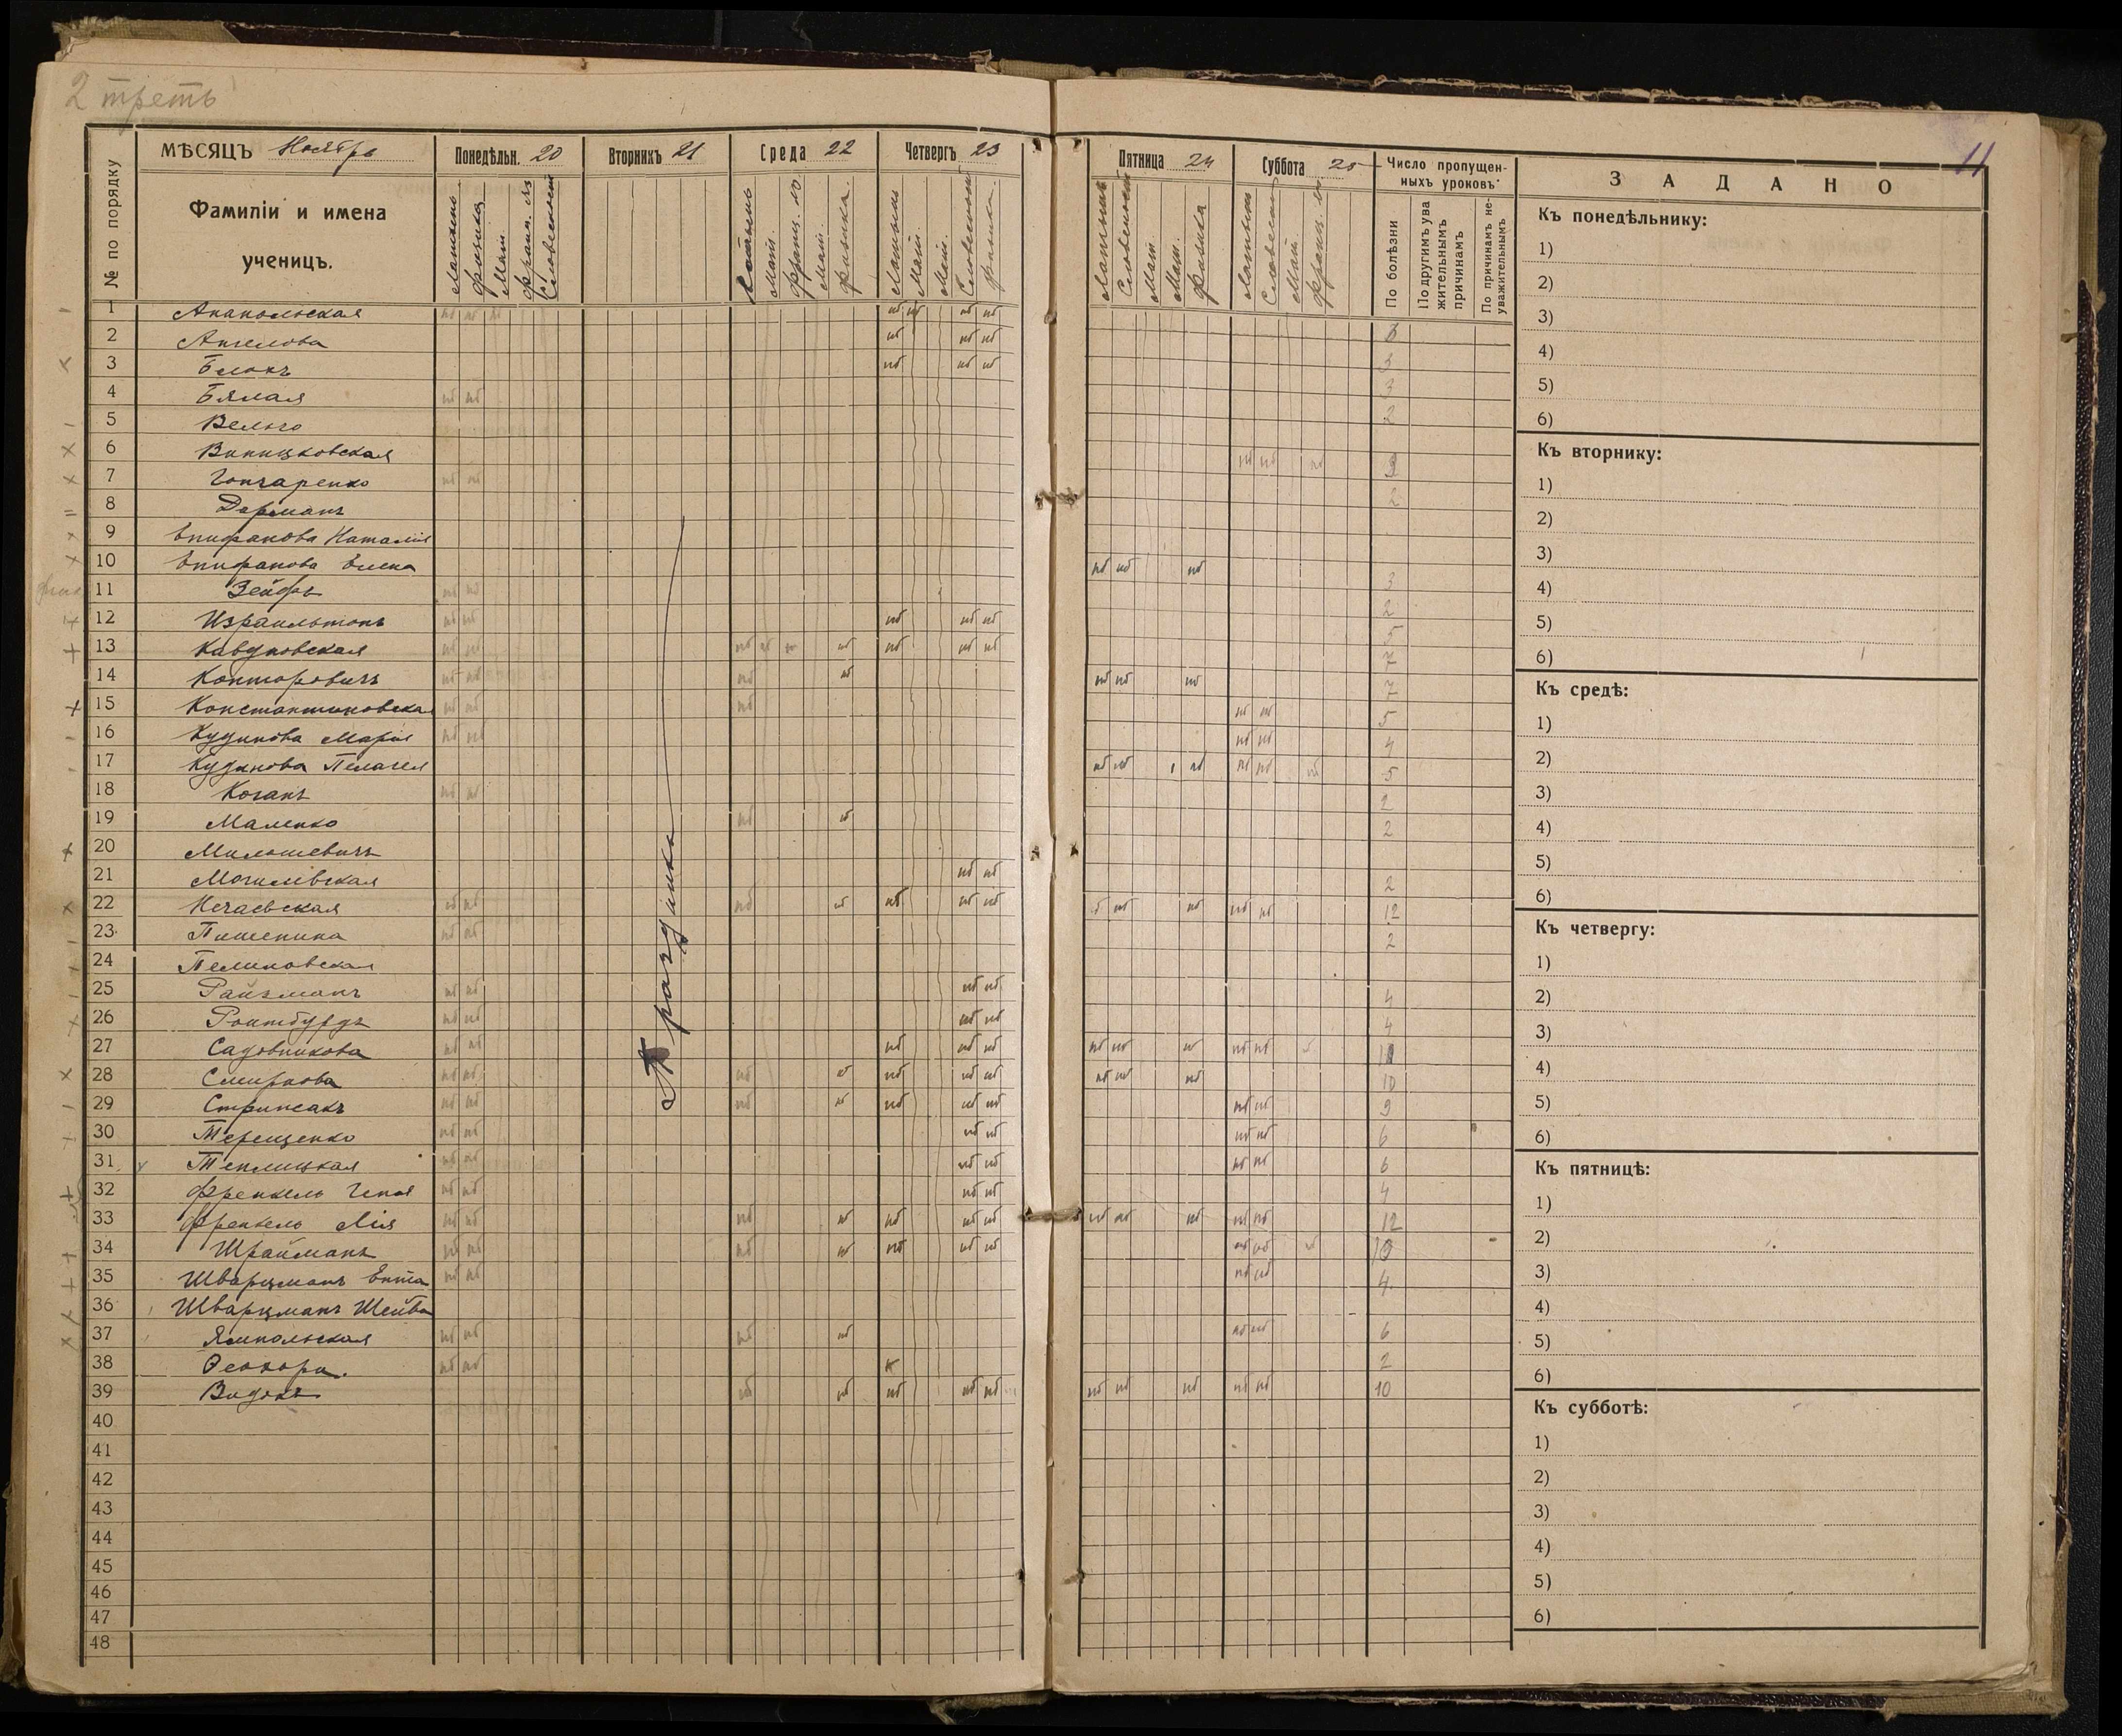 2 треть
11
№ по порядку
МѢСЯЦЪ Ноябрь
Фамиліи и имена
ученицъ.
Понедѣльн. 20
Вторникъ 21
Среда 22
Четвергъ 23
Пятница 24
Суббота 25
Число пропущен-
ныхъ уроковъ
По болѣзни
По другимъ ува
жительнымъ
причинамъ
По причинамъ не-
уважительнымъ
Латынь
физика
Мат.
франц. яз
Словесность
Мат.
Мат.
физика.
Латынь
Мат.
Мат.
Словесность
физика
Латынь
Словесность
Мат.
Мат.
физика
Латынь
Словесность
Мат.
Праздникъ
1 Анапольская нб нб нб нб нб нб нб
2 Ангелова нб нб нб 3
3 Блокъ нб нб нб 3
4 Бялая нб нб 2
5 Вельго
6 Виницковская нб нб нб 3
7 Гончаренко нб нб 2
8 Дорманъ
9 Епифанова Наталія
10 Епифанова Елена нб нб нб 3
11 Зейфъ нб нб 2
12 Израильтонъ нб нб нб нб нб 5
13 Кавуновская нб нб нб нб нб нб нб нб 7
14 Конторовичъ нб нб нб нб нб нб нб 7
15 Константиновская нб нб нб нб нб 5
16 Кудинова Марія нб нб нб нб 4
17 Кудинова Пелагея нб нб нб нб нб нб 5
18 Коганъ нб нб 2
19 Маленко нб нб 2
20 Милошевичъ
21 Могилівская нб нб 2
22 Нечаевская нб нб нб нб нб нб нб нб нб нб нб нб 12
23 Пишенина нб нб 2
24 Пелиновская
25 Райзманъ нб нб нб нб 4
26 Роитбурдъ нб нб нб нб 4
27 Садовникова нб нб нб нб нб нб нб нб нб нб нб
28 Смирнова нб нб нб нб нб нб нб нб нб нб 10
29 Стрижакъ нб нб нб нб нб нб нб нб нб 9
30 Терещенко нб нб нб нб нб нб 6
31 Теплицкая нб нб нб нб нб нб 6
32 Френкель Геня нб нб нб нб 4
33 Френкель Лія нб нб нб нб нб нб нб нб нб нб нб нб 12
34 Шрайманъ нб нб нб нб нб нб нб нб нб нб 10
35 Шварцманъ Ента нб нб нб нб 4
36 Шварцманъ Шейва
37 Ямпольская нб нб нб нб нб нб 6
38 нб нб 2
39 Видокъ нб нб нб нб нб нб нб нб нб нб 10
40
41
42
43
44
45
46
47
48
ЗАДАНО
Къ понедѣльнику:
1)
2)
3)
4)
5)
6)
Къ вторнику:
1)
2)
3)
4)
5)
6)
Къ средѣ:
1)
2)
3)
4)
5)
6)
Къ четвергу:
1)
2)
3)
4)
5)
6)
Къ пятницѣ:
1)
2)
3)
4)
5)
6)
Къ субботѣ:
1)
2)
3)
4)
5)
6)